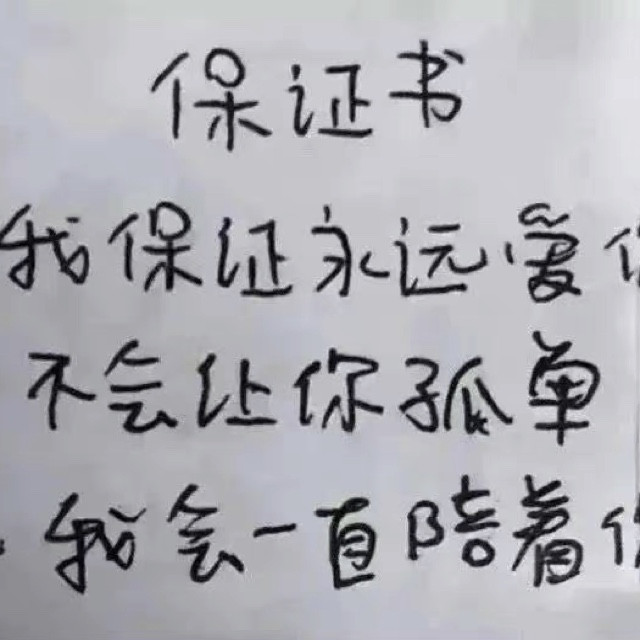 保证书
我保证永远爱
不会让你孤单
我会一直陪着